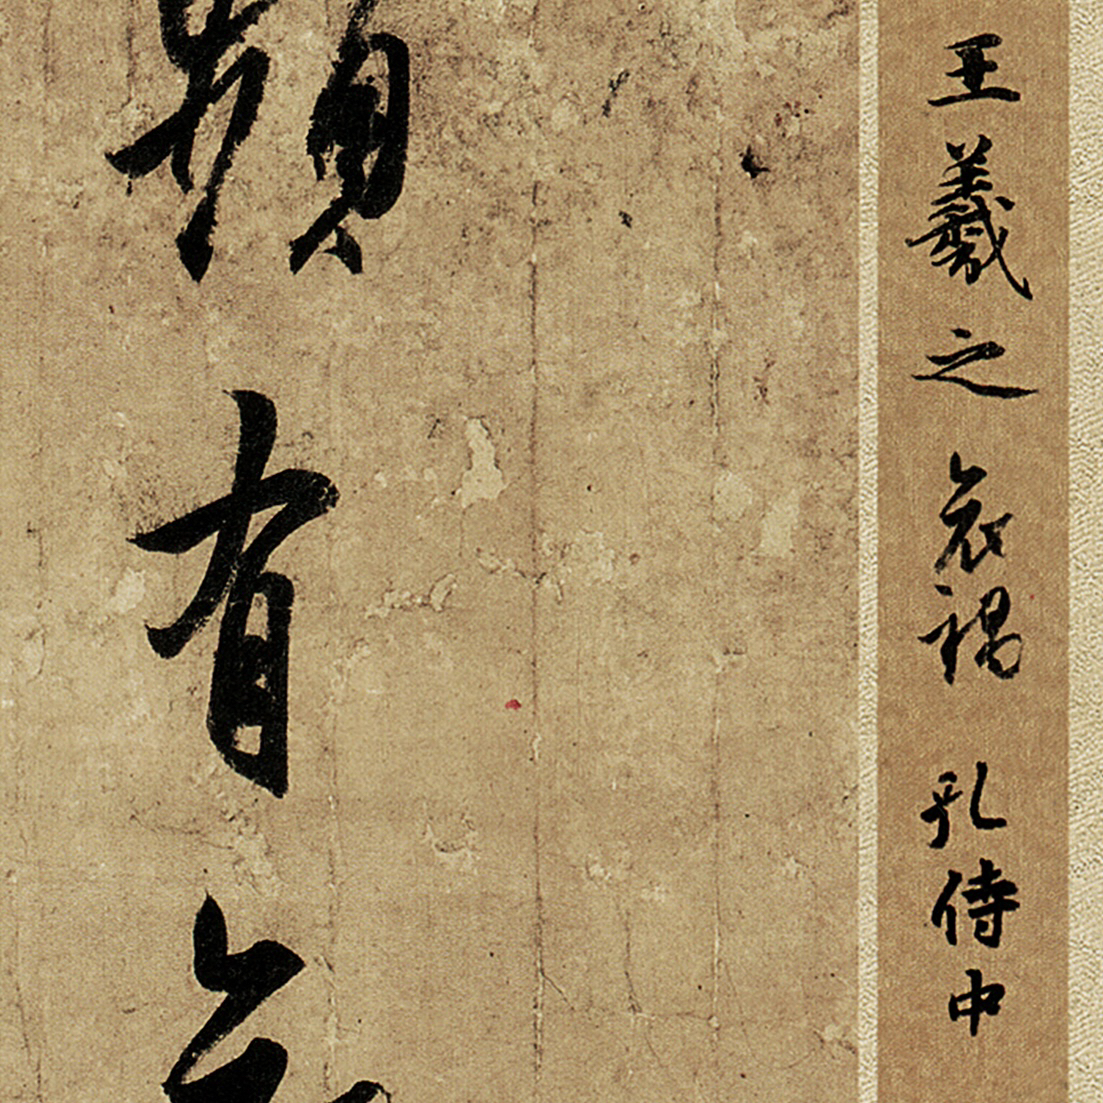 王羲之哀禍孔侍中
頻有哀